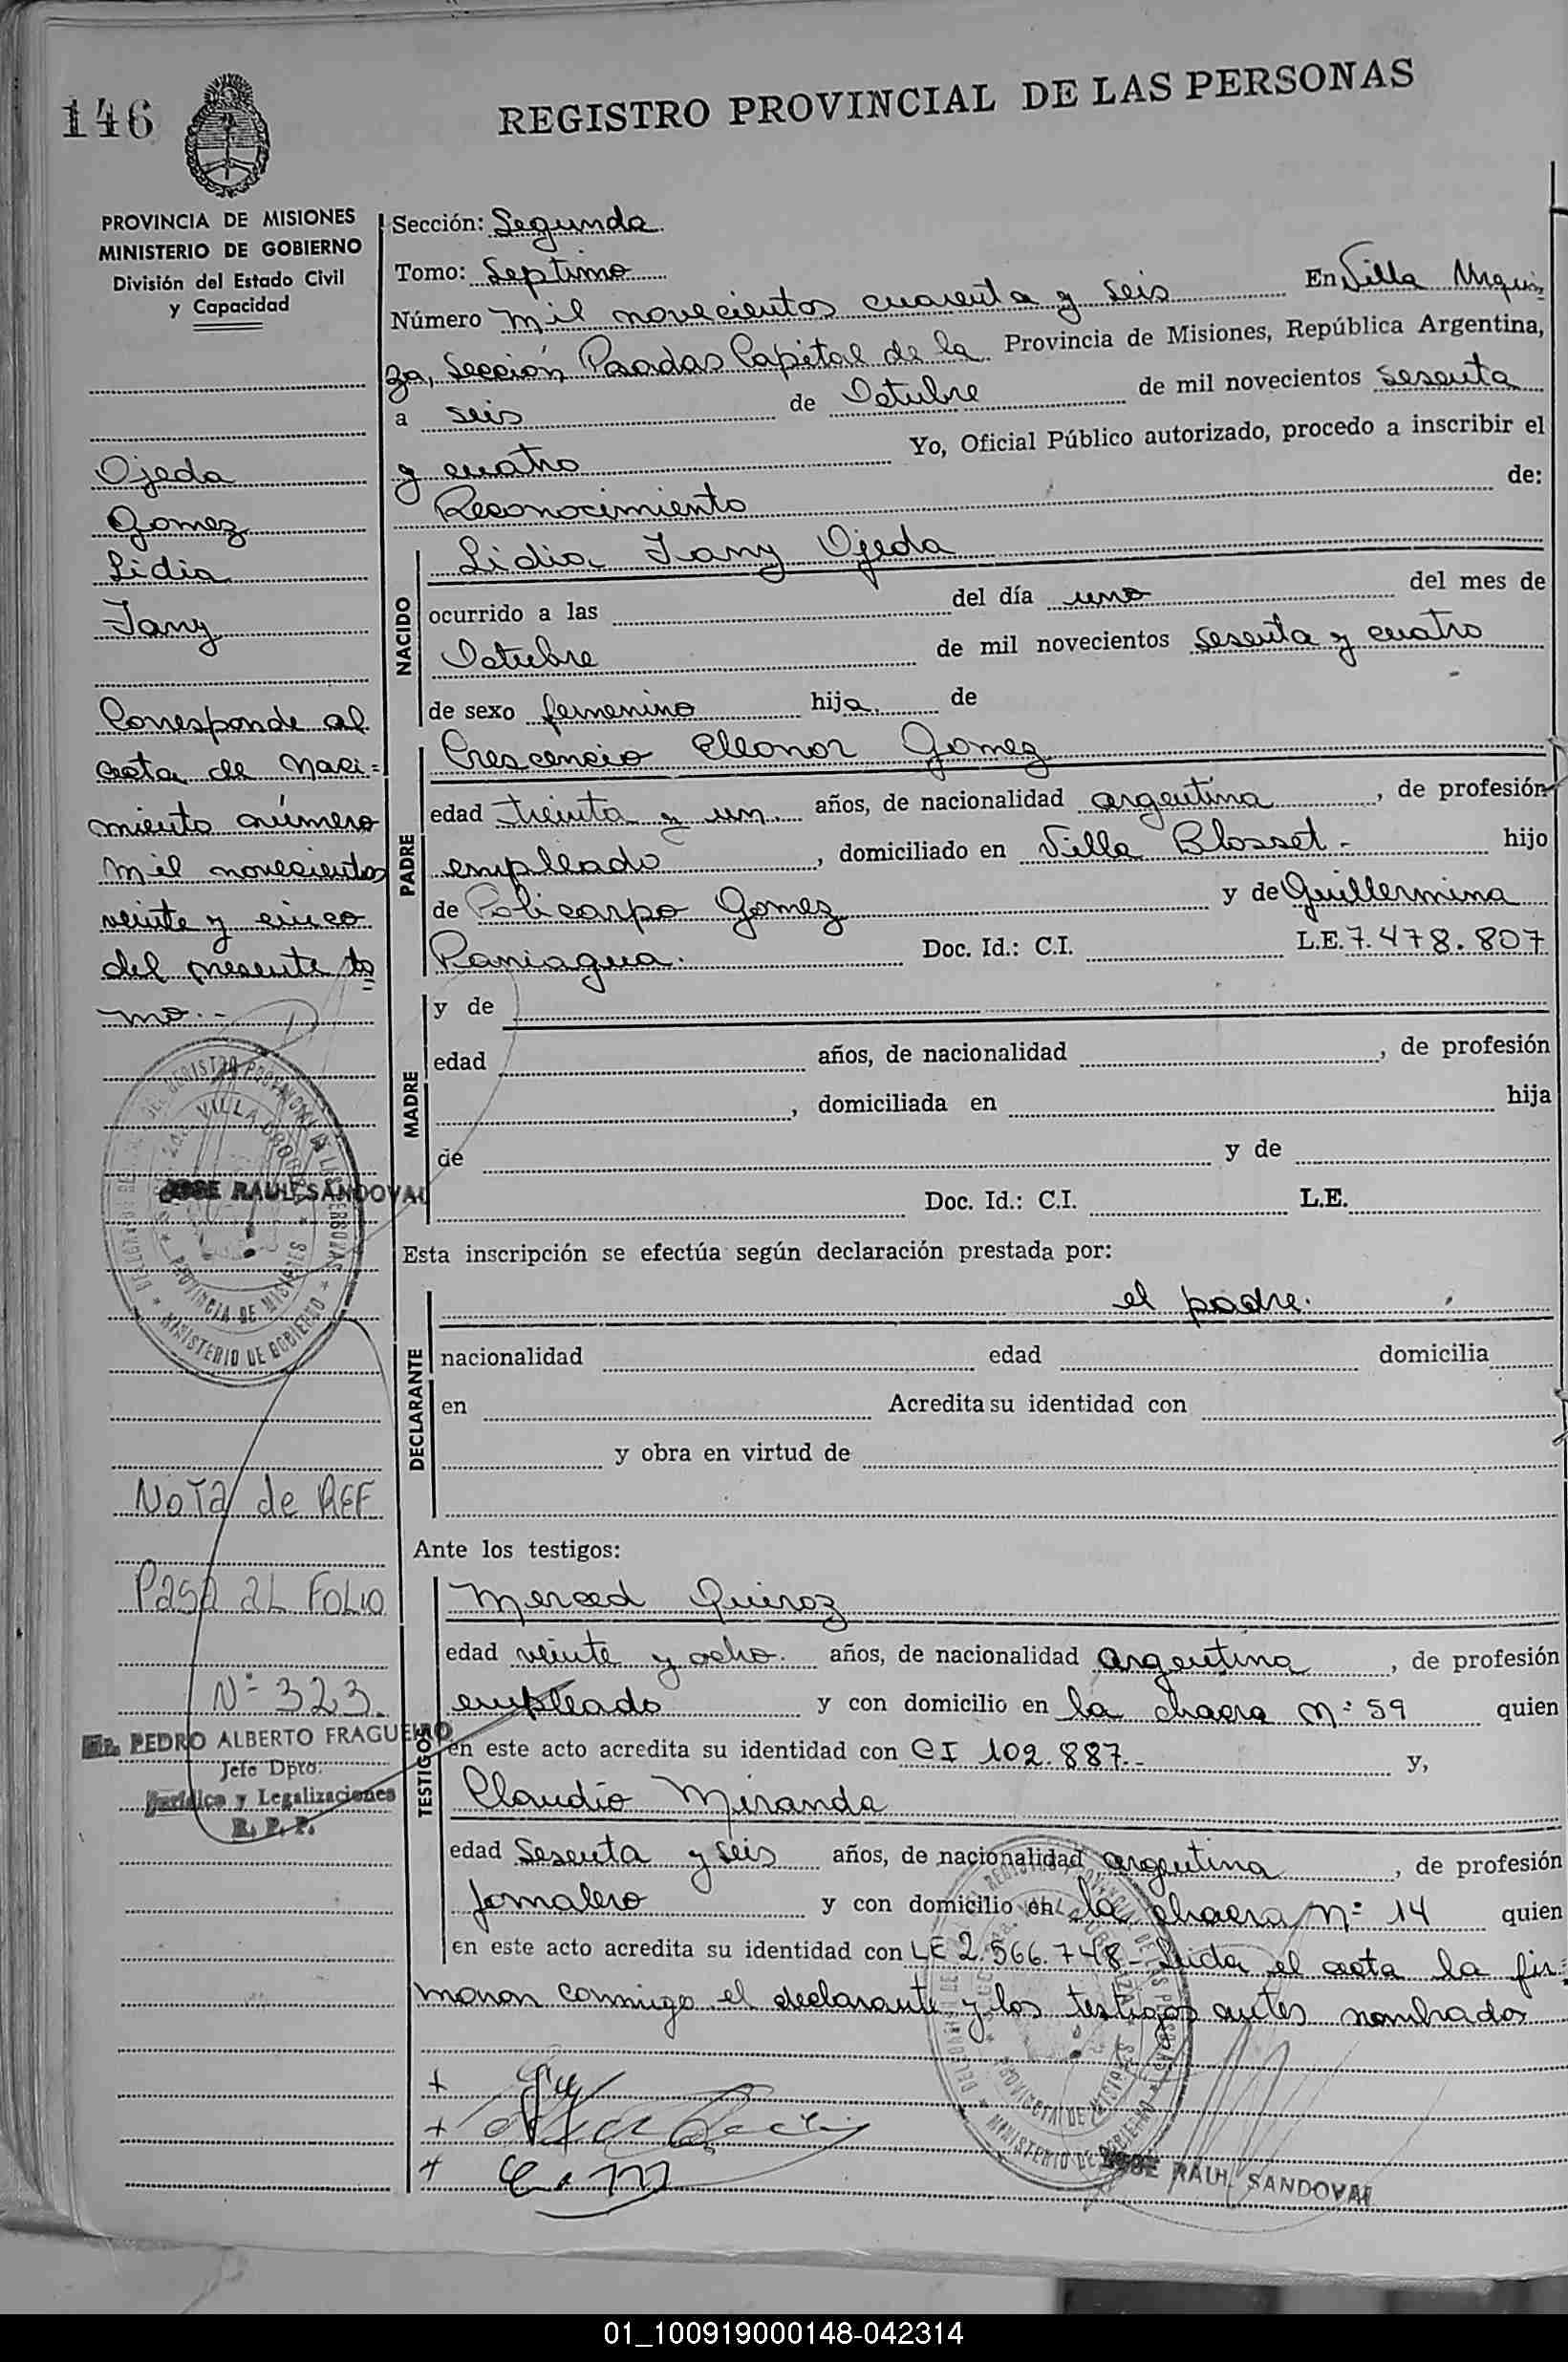 146
REGISTRO PROVINCIAL DE LAS PERSONAS
PROVINCIA DE MISIONES
MINISTERIO DE GOBIERNO
División del Estado Civil
y Capacidad
Ojeda
Gomez
Lidia
Jany
Corresponde al
acta de Naci=
miento número
mil novecientos
veinte y cinco
del presente to
mo.-
JOSE RAUL SANDOVAL
VILLA URQUIZA
PROVINCIA DE MISIONES
MINISTERIO DE GOBIERNO
NOTA de REF
PASA AL FOLIO
Nº 323.
PEDRO ALBERTO FRAGUEIRO
Jefe Dpto.
Jurídico y Legalizaciones
R. P. P.
Sección: Segunda
Tomo: Septimo
Número mil novecientos cuarenta y seis En Villa Urqui
za, Sección Posadas Capital de la Provincia de Misiones, República Argentina,
a seis de Octubre de mil novecientos sesenta
y cuatro Yo, Oficial Público autorizado, procedo a inscribir el
Reconocimiento de:
NACIDO
Lidia Jany Ojeda
ocurrido a las del día uno del mes de
Octubre de mil novecientos sesenta y cuatro
de sexo femenino hija de
PADRE
Crescencio Eleonor Gomez
edad treinta y un años, de nacionalidad argentina, de profesión
empleado, domiciliado en Villa Blosset.- hijo
de Policarpo Gomez y de Guillermina
Paniagua. Doc. Id.: C.I. L.E. 7.478.807
MADRE
y de
edad años, de nacionalidad , de profesión
, domiciliada en hija
de y de
Doc. Id.: C.I. L.E.
Esta inscripción se efectúa según declaración prestada por:
DECLARANTE
el padre.
nacionalidad edad domicilia
en Acredita su identidad con
y obra en virtud de
Ante los testigos:
TESTIGOS
Merced Quiroz
edad veinte y ocho años, de nacionalidad argentina, de profesión
empleado y con domicilio en la chacra Nº 59 quien
en este acto acredita su identidad con CI 102.887.- y,
Claudio Miranda
edad Sesenta y seis años, de nacionalidad argentina, de profesión
Jornalero y con domicilio en la chacra Nº 14 quien
en este acto acredita su identidad con LE 2.566.748- Leida el acta la fir=
maron conmigo el declarante y los testigos antes nombrados
C. M
MINISTERIO DE GOBIERNO
JOSE RAUL SANDOVAL
01_100919000148-042314